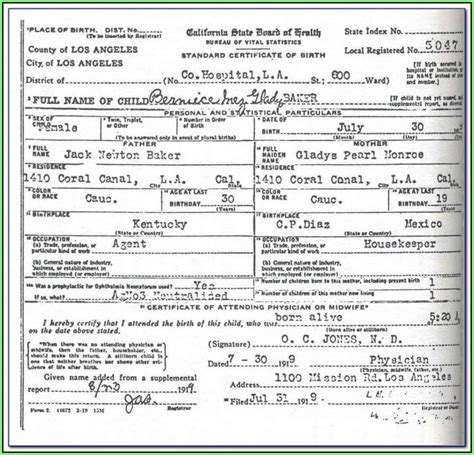 PLACE OF BIRTH. DIST. No.
(To be Inserted by Registrar)
County of LOS ANGELES
City of LOS ANGELES
District of
California State Board of Health
BUREAU OF VITAL STATISTICS
STANDARD CERTIFICATE OF BIRTH
State Index No.
Local Registered No. 5047
Co.Hospital,L.A. (No. 600 St. Ward)
FULL NAME OF CHILD Bernice Inez Gladys BAKER
PERSONAL AND STATISTICAL PARTICULARS
SEX OF CHILD Female
Twin, Triplet, or Other
Number in Order of Birth
(To be answered only in event of plural births)
DATE OF BIRTH July 30
FATHER
FULL NAME Jack Newton Baker
MOTHER
FULL MAIDEN NAME Gladys Pearl Monroe
RESIDENCE
1410 Coral Canal, L.A. Cal.
RESIDENCE
1410 Coral Canal, L.A. Cal.
COLOR OR RACE Cauc.
AGE AT LAST BIRTHDAY 30
COLOR OR RACE Cauc.
AGE AT LAST BIRTHDAY 19
BIRTHPLACE
Kentucky
(State or Country)
BIRTHPLACE
C.P.Diaz Mexico
(State or Country)
OCCUPATION
(a) Trade, profession, or particular kind of work
Agent
(b) General nature of industry, business, or establishment in which employed (or employer)
OCCUPATION
(a) Trade, profession, or particular kind of work
Housekeeper
(b) General nature of industry, business, or establishment in which employed (or employer)
Was a prophylactic for Ophthalmia Neonatorum used? Yes
If so, what? AgNo3 Neutralized
Number of children born to this mother, including present birth 1
Number of children of this mother now living 1
CERTIFICATE OF ATTENDING PHYSICIAN OR MIDWIFE*
I hereby certify that I attended the birth of this child, who was born alive 5:20
on the date above stated. (Born alive or stillborn)
*When there was no attending physician or midwife, then the father, householder, etc., should make this return. A stillborn child is one that neither breathes nor shows other evidence of life after birth.
(Signature) O. C. JONES, N. D.
Dated 7-30 1919 Physician
(Physician, midwife, father, etc.)
Given name added from a supplemental
report 1919
Registrar
Address 1100 Mission Rd. Los Angeles
Filed Jul 31 1919
Registrar or Deputy